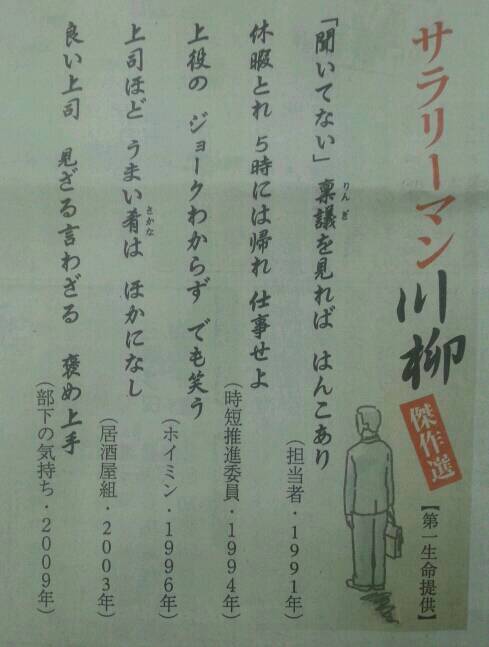 サラリーマン川柳 傑作選 【第一生命提供】
「聞いてない」稟議を見れば はんこあり
りんぎ
（担当者・1991年）
休暇とれ 5時には帰れ 仕事せよ
（時短推進委員・1994年）
上役の ジョークわからず でも笑う
（ホイミン・1996年）
上司ほど うまい肴は ほかになし
さかな
（居酒屋組・2003年）
良い上司 見ざる言わざる 褒め上手
（部下の気持ち・2009年）